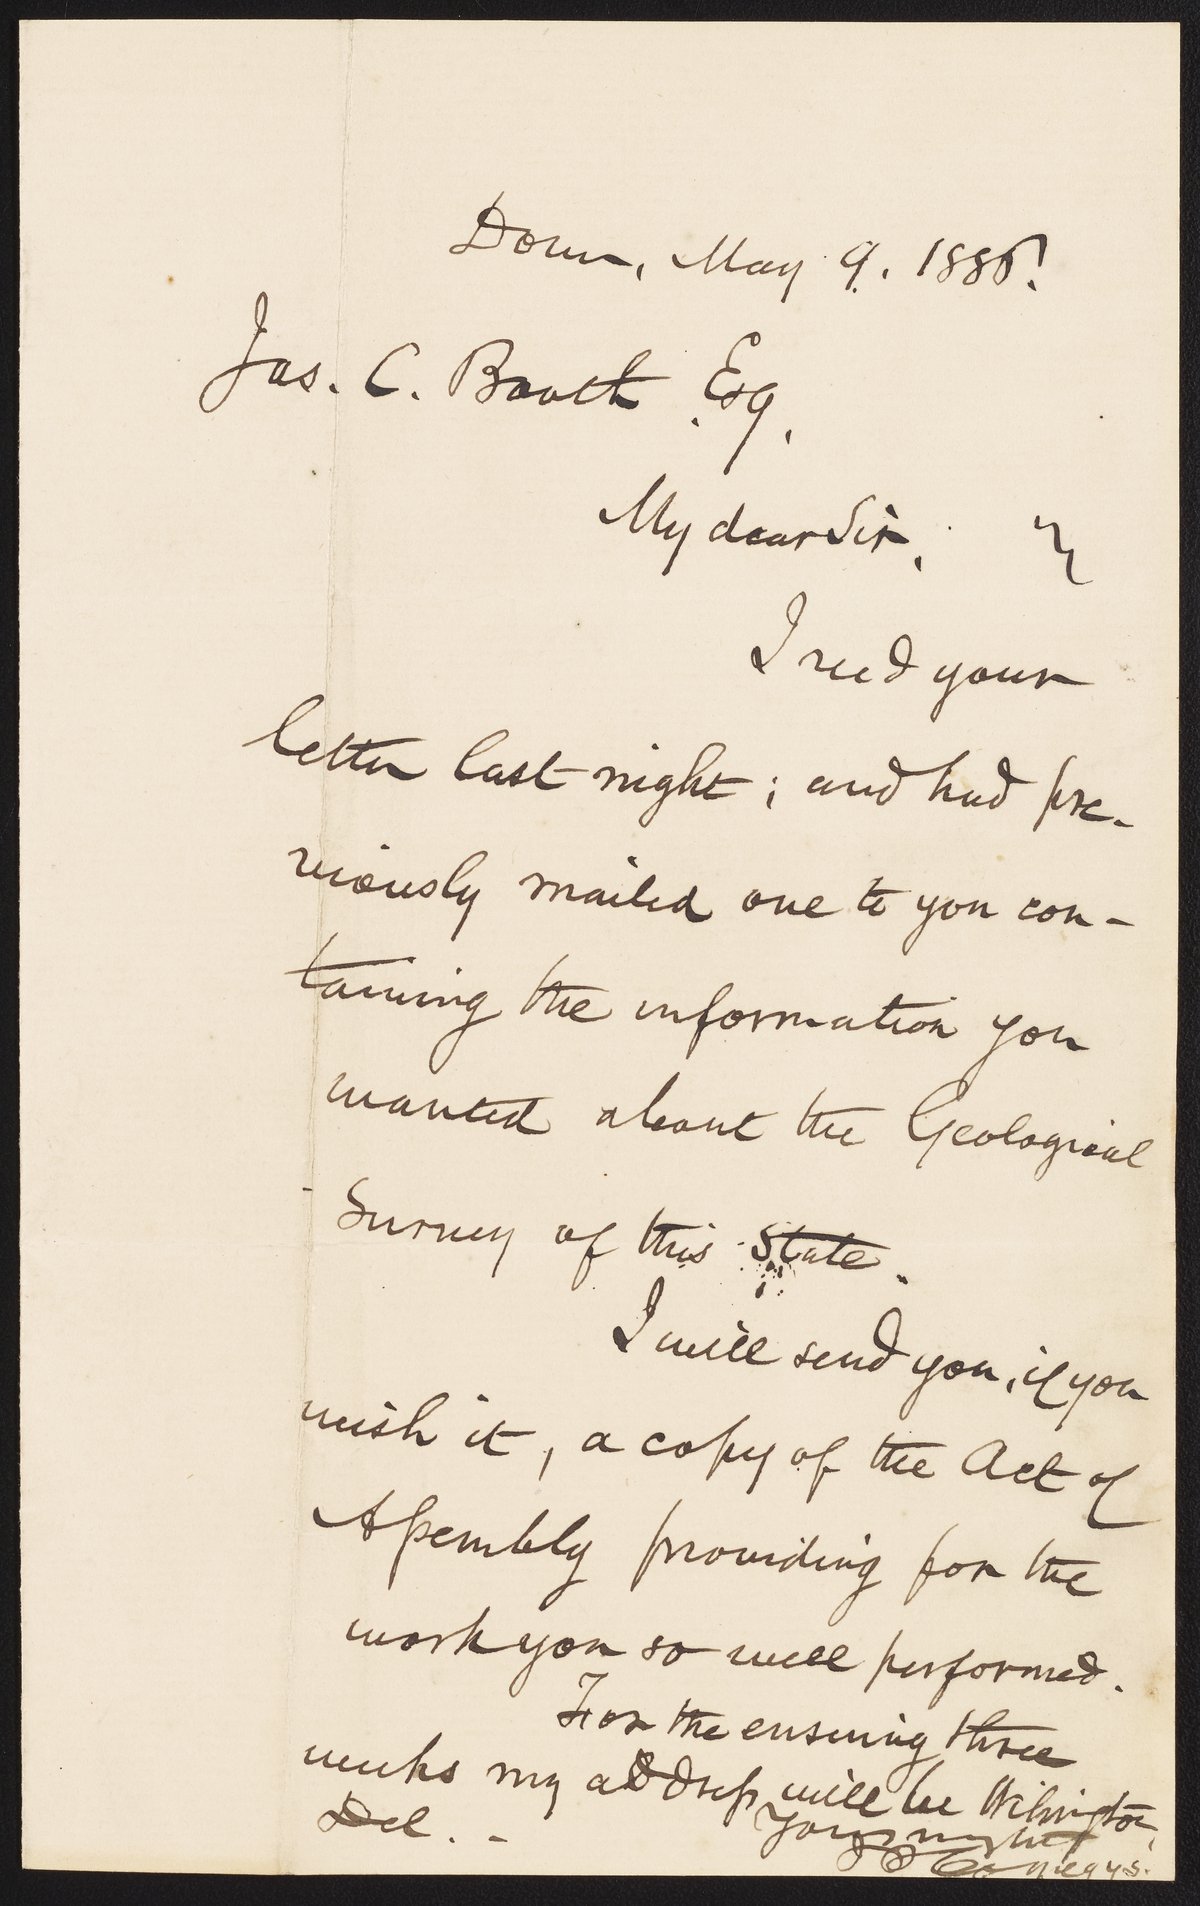 Dover, May 9. 1886.
Jas. C. Booth Esq.
My dear Sir,
I recd your
letter last night; and had pre-
viously mailed one to you con-
taining the information you
wanted about the Geological
Survey of this State.
I will send you, if you
wish it, a copy of the Act of
Assembly providing for the
work you so well performed.
For the ensuing three
weeks my address will be Wilmington,
Del.
Yours
Comegys.